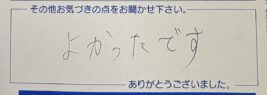 その他お気づきの点をお聞かせ下さい。
よかったです
ありがとうございました。